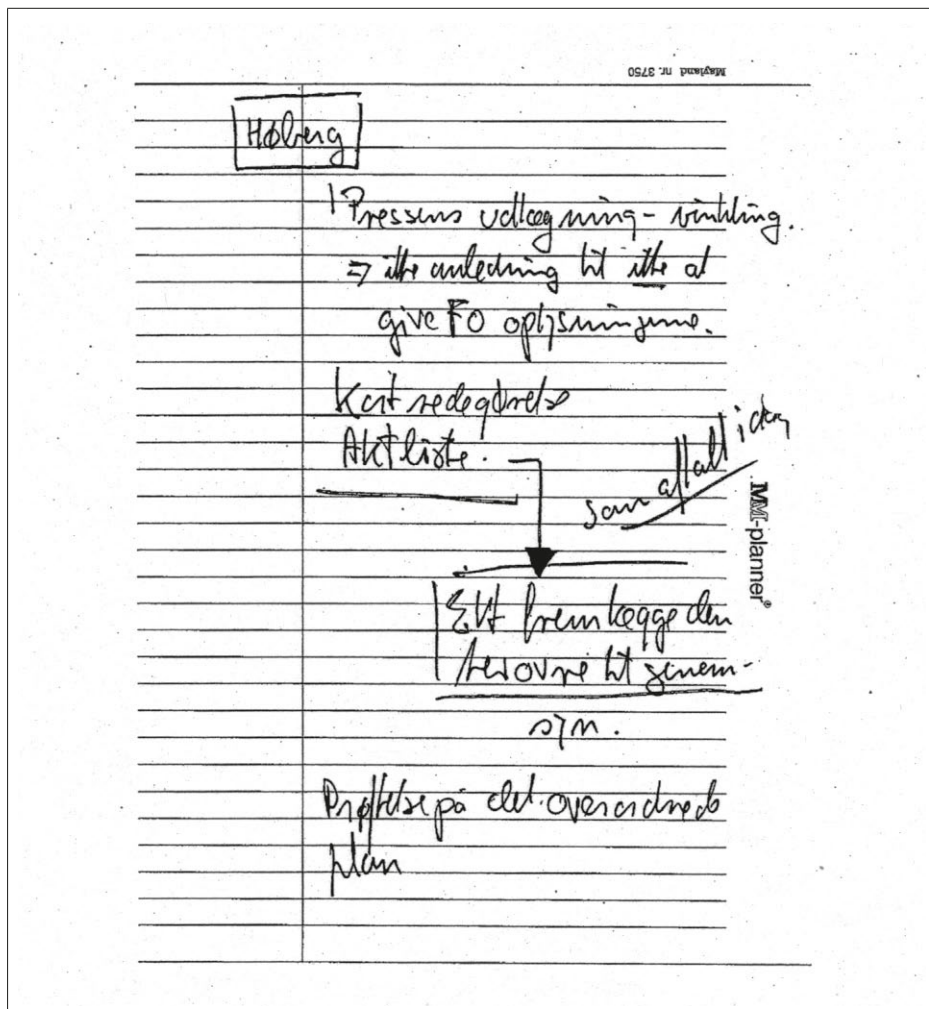 Mayland nr. 3750
Høberg
! Pressens udlægning - vinkling.
=> ikke anledning til ikke at
give FO oplysningerne.
Kort redegørelse
Aktliste.
i dag
MM-planner®
Evt fremlægge den
herovre til gennem-
syn.
Drøftelse på det overordnede
plan